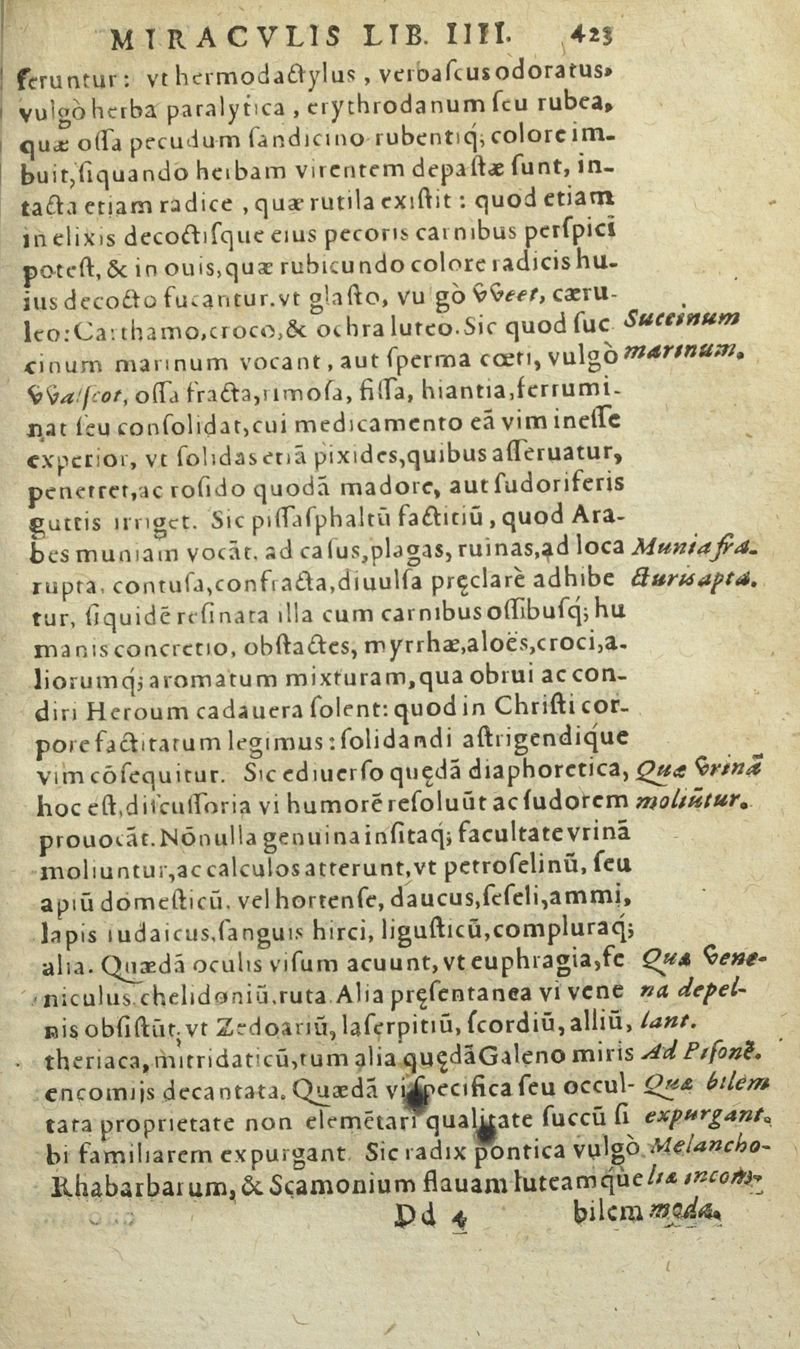 MIRACVLIS LIB. IIII. 423
feruntur: vt hermodactylus, verbascus odoratus,
vulgò herba paralytica, erythrodanum seu rubea,
quæ ossa pecudum sandicino rubentiq; colore im-
buit, siquando herbam virentem depastæ sunt, in-
tacta etiam radice, quæ rutila existit: quod etiam
in elixis decoctisque eius pecoris carnibus perspici
potest, & in ouis, quæ rubicundo colore radicis hu-
ius decocto fucantur. vt glasto, vulgò VVeet, cæru-
leo: Carthamo, croco, & ochra luteo. Sic quod suc-
Succinum
cinum marinum vocant, aut sperma cœti, vulgò
marinum.
VValscot, ossa fracta, rimosa, fissa, hiantia, ferrumi-
nat seu consolidat, cui medicamento eā vim inesse
experior, vt solidas etiā pixides, quibus asseruatur,
penetret, ac rosido quodā madore, aut sudoriferis
guttis irriget. Sic pissasphaltū factitiū, quod Ara-
bes muniam vocāt, ad casus, plagas, ruinas, ad loca
Munia fra-
rupta, contusa, confracta, diuulsa pręclarè adhibe
cturis apta.
tur, siquidē resinata illa cum carnibus ossibusq; hu
manis concretio, ob stactes, myrrhæ, aloës, croci, a-
liorumq; aromatum mixturam, qua obrui ac con-
diri Heroum cadauera solent: quod in Christi cor-
pore factitatum legimus: solidandi astrigendique
vim cōsequitur. Sic ediuerso quędā diaphoretica,
Quæ vrinā
hoc est, discussoria vi humorē resoluūt ac sudorem
moliūtur.
prouocāt. Nōnulla genuina insitaq; facultate vrinā
moliuntur, ac calculos atterunt, vt petroselinū, seu
apiū domesticū, vel hortense, daucus, seseli, ammi,
lapis iudaicus, sanguis hirci, ligusticū, compluraq;
alia. Quædā oculis visum acuunt, vt euphragia, fe
Quæ vene-
niculus, chelidoniū, ruta. Alia pręsentanea vi vene
na depel-
nis obsistūt, vt Zedoariū, laserpitiū, scordiū, alliū,
lant.
theriaca, mitridaticū, tum alia quędā Galeno miris
Ad Pisonē.
encomijs decantata. Quædā vi specifica seu occul-
Quæ bilem
tata proprietate non elemētari qualitate succū si
expurgant.
bi familiarem expurgant. Sic radix pontica vulgò
Melancho-
Rhabarbarum, & Scamonium flauam luteamque
liæ incom-
Dd 4 bilem
moda.